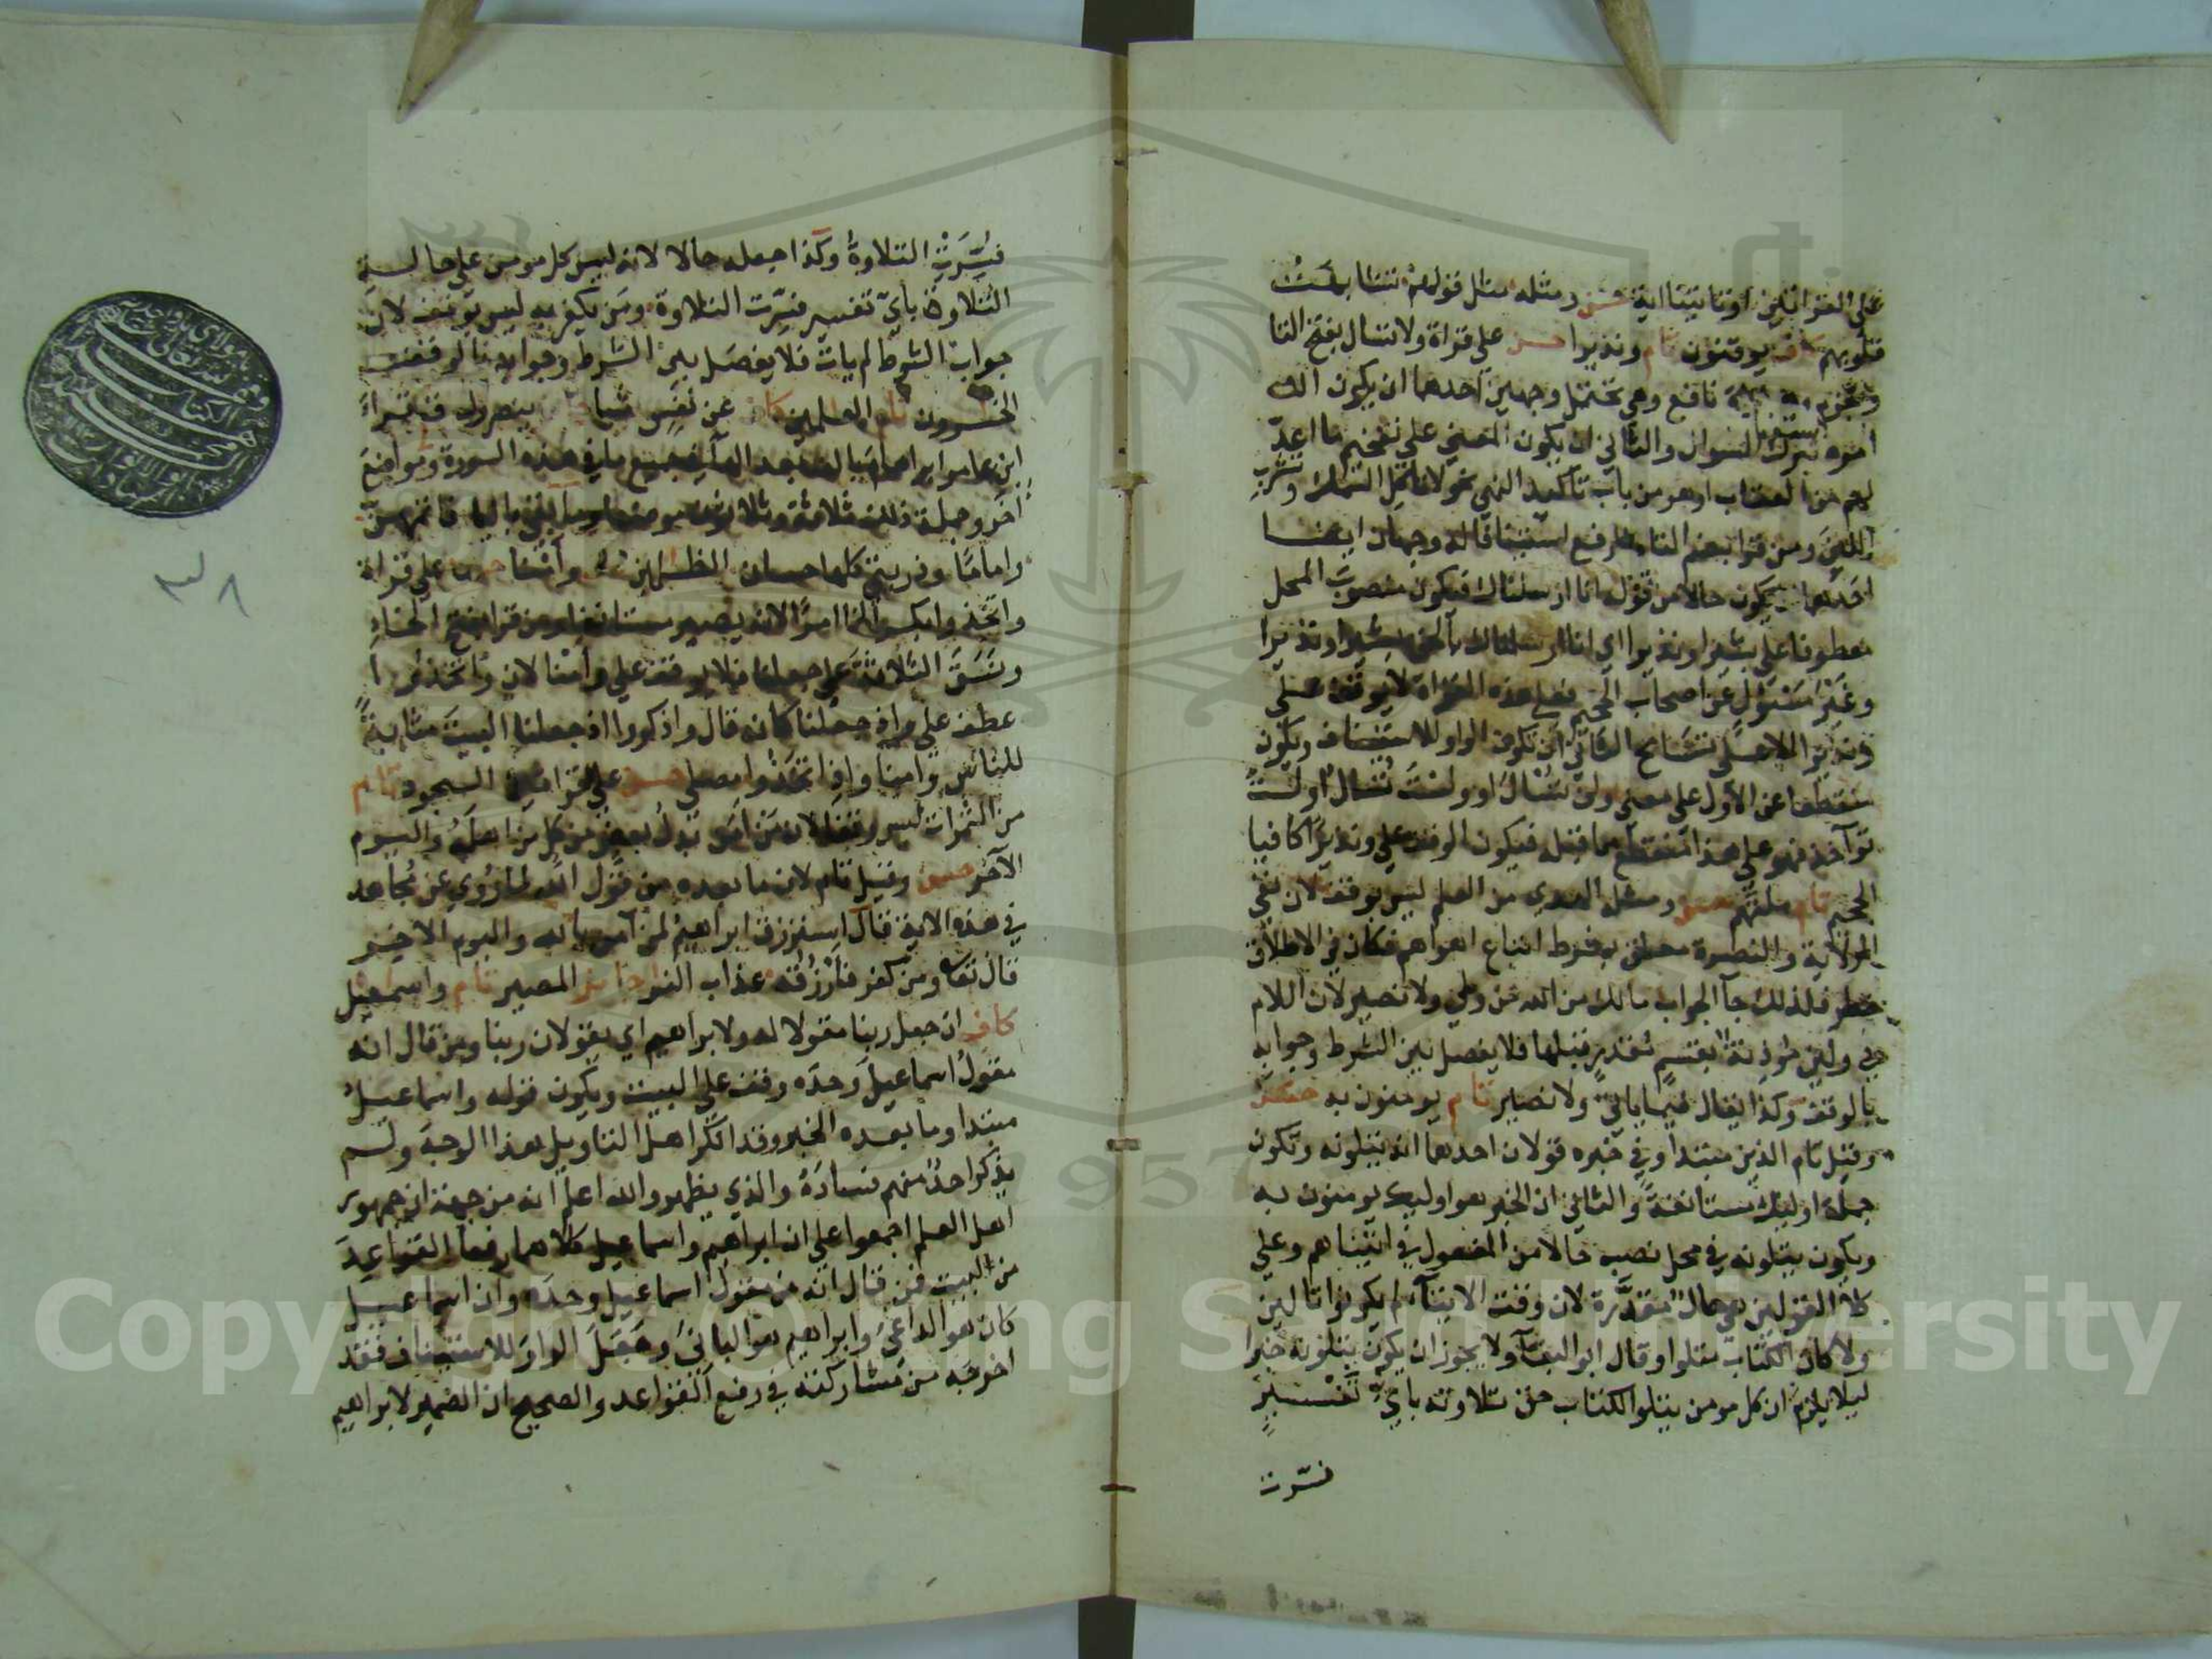 على القراتين او تاتينا اية حسن ومثله مثل قولهم تشابهت
قلوبهم كاف يوقنون تام ونذيرا حسن على قراة ولا تسال بفتح التا
والجزم وهي قراة نافع وهي تحتمل وجهين احدهما ان يكون الله
امره بترك السوال والثاني ان يكون المعنى على تفخيم ما اعد
لهم من العقاب او هو من باب تاكيد النهي نحو لا تاكل السمك وتشرب
اللبن ومن قرا بضم التا والرفع استينافا له وجهان ايضا
احدهما ان يكون حالا من قوله انا ارسلناك فيكون منصوب المحل
معطوفا على بشيرا ونذيرا اي انا ارسلناك بالحق بشيرا ونذيرا
وغير مسئول عن اصحاب الجحيم فعلى هذه القراة لا يوقف على
ونذيرا الا على تسامح الثاني ان تكون الواو للاستيناف ويكون
منقطعا عن الاول على معنى ولن تسال او ولست تسال او لست
تواخذ فهو على هذا منقطع عما قبله فيكون الوقف على ونذيرا كافيا
الجحيم تام ملتهم حسن ومثله الهدى من العلم ليس بوقف لان نفي
الولاية والنصرة معلق بشرط اتباع اهواهم فكان في الاطلاق
خطر فلذلك جا الجواب مالك من الله من ولي ولا نصير لان اللام
في ولئن موذنة بقسم مقدر قبلها فلا يفصل بين الشرط وجوابه
بالوقف وكذا يقال فيما ياتي ولا نصير تام يومنون به حسن
وقيل تام الذين مبتدا وفي خبره قولان احدهما انه يتلونه وتكون
جملة اوليك مستانفة والثاني ان الخبر هو اوليك يومنون به
ويكون يتلونه في محل نصب حالا من المفعول في اتيناهم وعلى
كلا القولين هي حال مقدرة لان وقت الايتا لم يكونوا تالين
ولا كان الكتاب متلوا وقال ابو البقا ولا يجوز ان يكون يتلونه خبرا
ليلا يلزم ان كل مومن يتلو الكتاب حق تلاوته باي تفسير
فسرت
فسرت التلاوة وكذا جعله حالا لانه ليس كل مومن على حالة
التلاوة باي تفسير فسرت التلاوة ومن يكفر به ليس بوقف لان
جواب الشرط لم يات فلا يفصل بين الشرط وجوابه بالوقف
الخسرون تام العلمين كاف عن نفس شيا ينصرون في قراة
ابن عامر ابراهام بالف بعد الها في جميع ما في هذه السورة ومواضع
اخر وجملة ذلك ثلاثة وثلاثون موضعا وما بقي باليا فاتمهن
واماما وذريتي كلها حسان الظلمين وامنا على قراة
واتخذوا بكسر الخا امرا لانه يصير مستانفا ومن قرا بفتح الخا
ونسق التلاوة على جعلنا فلا يوقف على وامنا لان واتخذوا
عطف على واذ جعلنا كانه قال واذكروا اذ جعلنا البيت مثابة
للناس وامنا واذ اتخذوا مصلى حسن على القراتين السجود تام
من الثمرات ليس بوقف لان من امن بدل بعض من كل من اهله واليوم
الاخر حسن وقيل تام لان ما بعده من قول الله لما روي عن مجاهد
في هذه الاية قال استرزق ابراهيم لمن امن بالله واليوم الاخر
قال تعا ومن كفر فارزقه عذاب النار جايز المصير تام واسمعيل
كاف ان جعل ربنا مقولا له ولابراهيم اي يقولان ربنا ومن قال انه
مقول اسماعيل وحده وقف على البيت ويكون قوله واسماعيل
مبتدا وما بعده الخبر وقد انكر اهل التاويل هذا الوجه ولم
يذكر احد منهم فساده والذي يظهر والله اعلم انه من جهة ان جمهور
اهل العلم اجمعوا على ان ابراهيم واسماعيل كلاهما رفعا القواعد
من البيت فمن قال انه من مقول اسماعيل وحده وان اسماعيل
كان هو الداعي وابراهيم هو الباني وجعل الواو للاستيناف فقد
اخرجه من مشاركته في رفع القواعد والصحيح ان الضمير لابراهيم